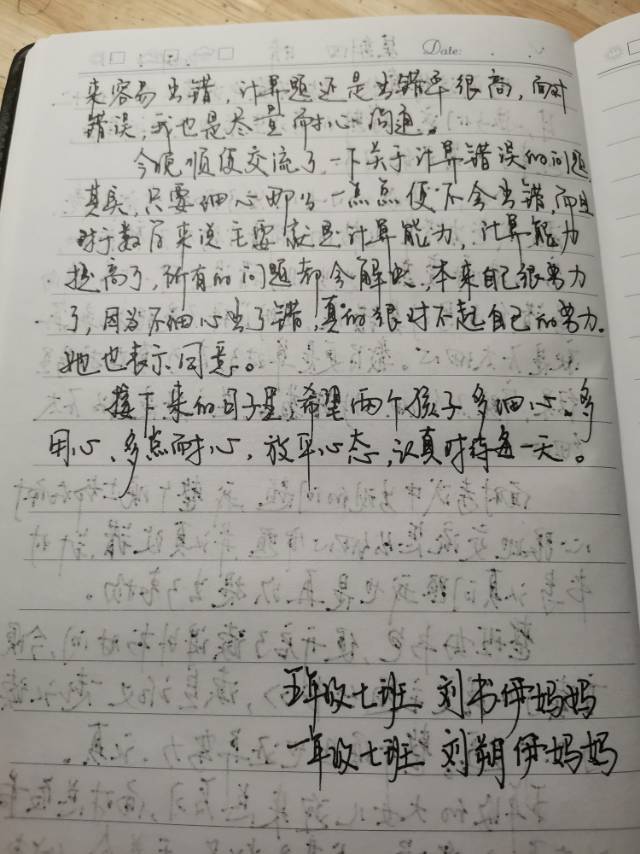 Date:
来容易出错，计算题还是出错率很高，面对
错误，我也是尽量耐心沟通。
今晚顺便交流了一下关于计算错误的问题
其实，只要细心那么一点点便不会出错，而且
对于数学来说主要就是计算能力，计算能力
提高了，所有的问题都会解决，本来自己很努力
了，因为不细心出了错，真的很对不起自己的努力。
她也表示同意。
接下来的日子里，希望两个孩子多细心、多
用心、多点耐心，放平心态，认真对待每一天。
五年级七班 刘书伊妈妈
一年级七班 刘朔伊妈妈